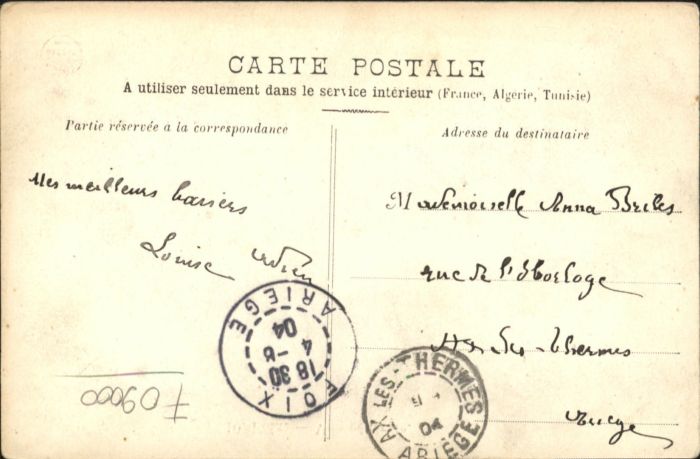 CARTE POSTALE
A utiliser seulement dans le service intérieur (France, Algerie, Tunisie)
Partie réservée a la correspondance
Adresse du destinataire
Mes meilleurs baisers
Louise
Mademoiselle Anna
rue de l'Horloge
Ax-les-Thermes
Ariège
FOIX
18 30
4 - 8
04
ARIEGE
AX-LES-THERMES
04
ARIEGE
F 09000